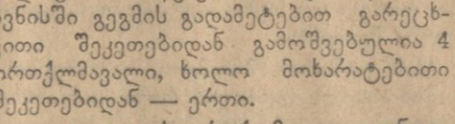 ვნისში გეგმის გადამეტებით გარეცხ-
ვითი შეკეთებიდან გამოშვებულია 4
ორთქლმავალი, ხოლო მოხარატებითი
შეკეთებიდან — ერთი.